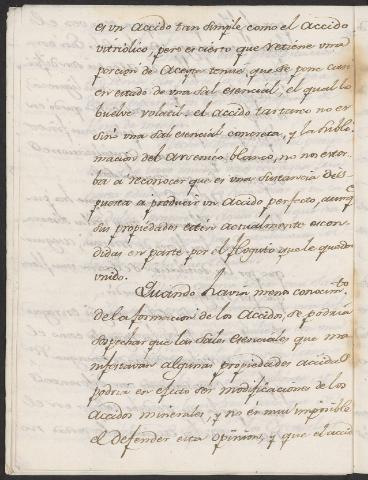 es un Accido tan simple como el Accido
vitriolico, pero es cierto que retiene una
porcion de Aceyte tenue, que se pone casi
en estado de una sal esencial, el qual lo
buelve volatil: el Accido tartaro no es
sin una sal esencial concreta, y la sublo-
macion del Arsenico blanco, no nos estor-
ba a reconocer que es una sustancia dis-
puesta a producir un Accido perfecto, aunq.e
sus propiedades estén actualmente escon-
didas en parte por el flogisto que le queda
unido.
Quando havia menos conocim.to
de la formacion de los Accidos, se podria
sospechar que las Sales esenciales que ma-
nifestavan algunas propiedades accidas
podrian en efecto ser modificaciones de los
Accidos minerales, y no era mui imposible
el defender esta opinion, y que el accid